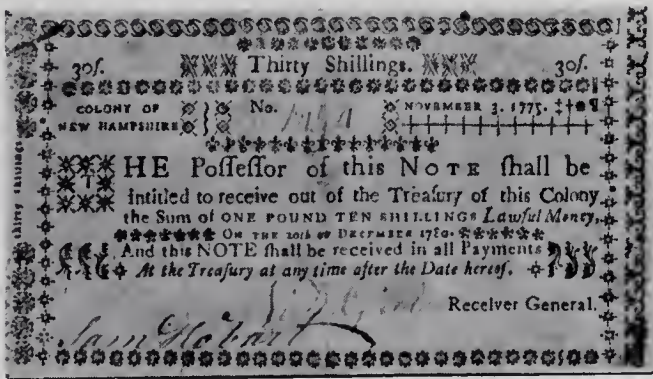 30ſ. Thirty Shillings. 30ſ.
COLONY OF NEW HAMPSHIRE No. NOVEMBER 3. 1775. ‡†●¶
THE Poſſeſſor of this NOTE ſhall be
intitled to receive out of the Treaſury of this Colony,
the Sum of ONE POUND TEN SHILLINGS Lawful Money,
ON THE 20th OF DECEMBER 1780.
And this NOTE ſhall be received in all Payments
At the Treaſury at any time after the Date hereof.
Receiver General.
Sam Hobart
thirty shillings